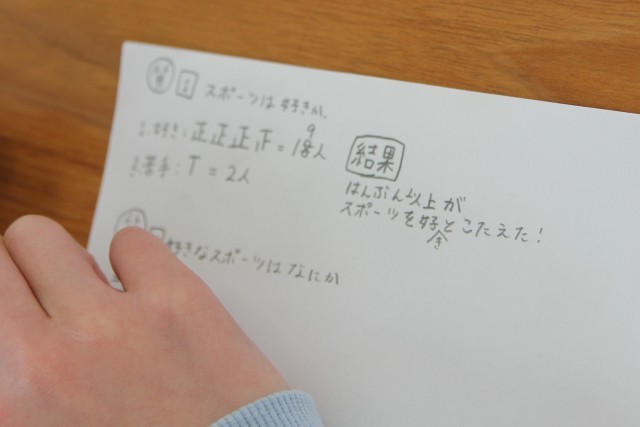 質問 1 スポーツは好きか、
1.好き:正正正正=18人
9
2.苦手:T=2人
結果
はんぶん以上が
スポーツを好とこたえた!
き
好きなスポーツはなにか